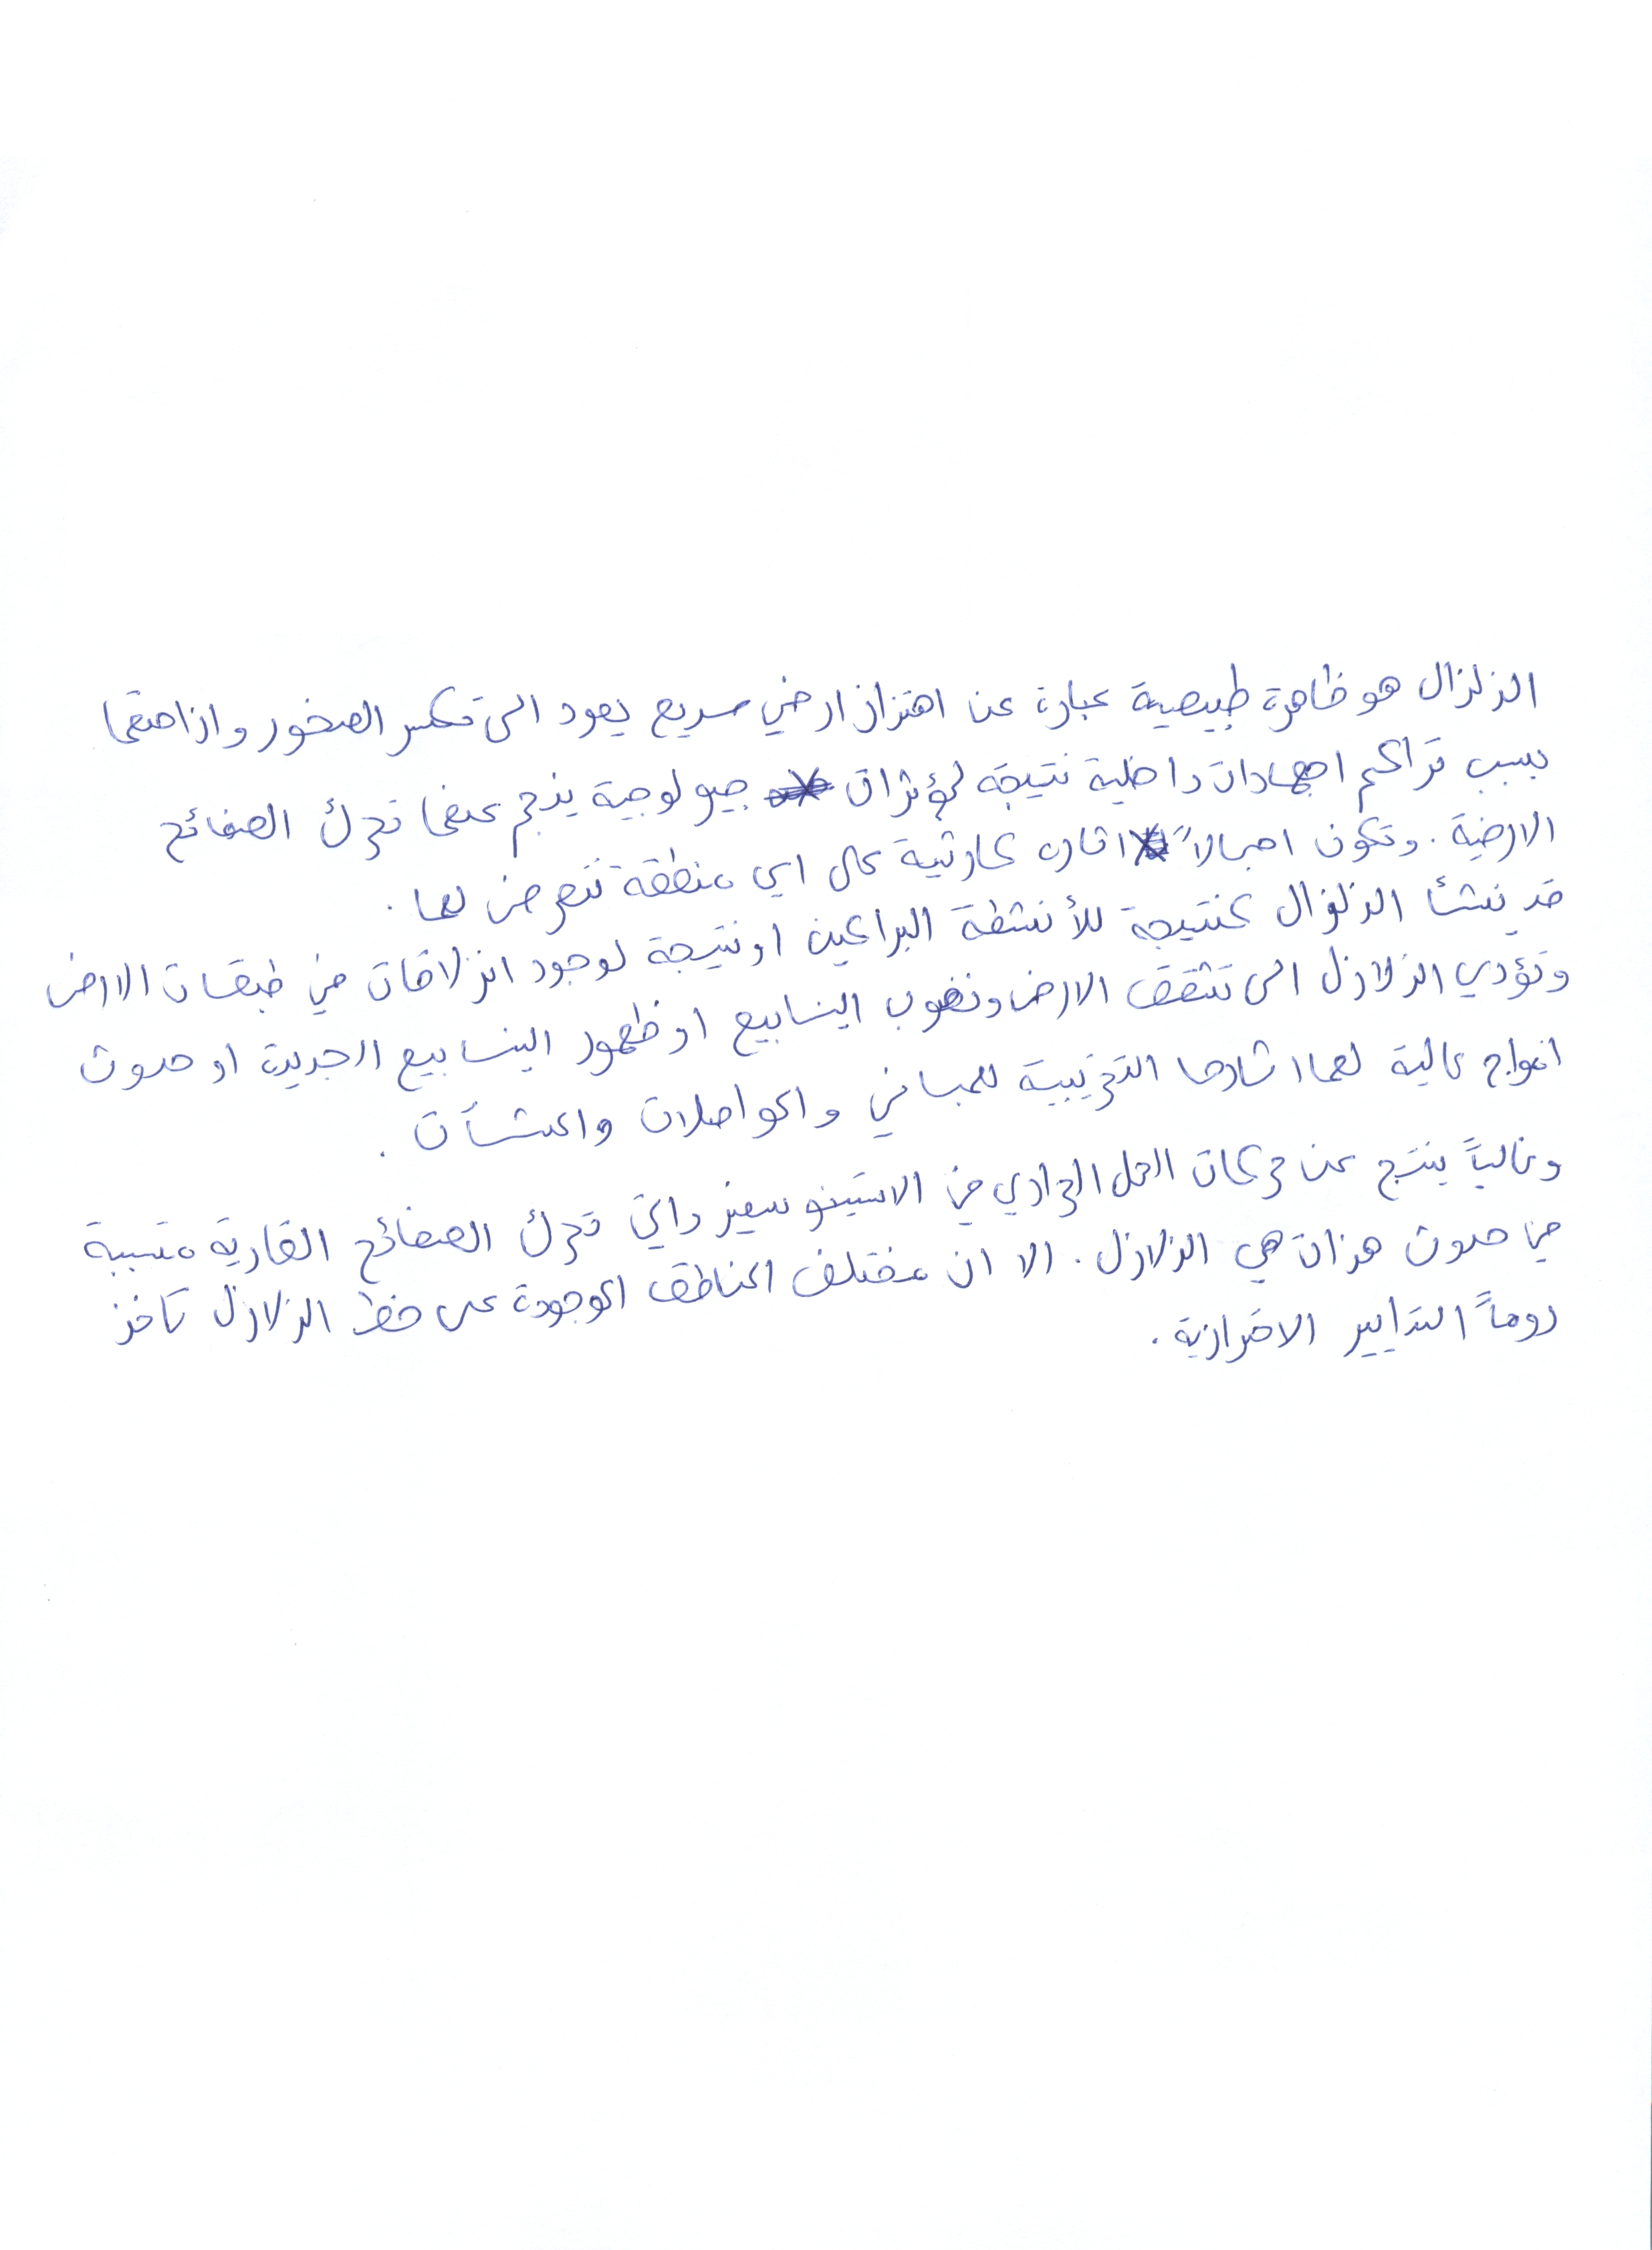 الزلزال هو ظاهرة طبيعية عبارة عن اهتزاز ارضي سريع يعود الى تكسر الصخور وازاحتها
بسبب تراكم اجهادات داخلية نتيجة لمؤثرات جيولوجية ينجم عنها تحرك الصفائح
الارضية. وتكون اجمالاً اثاره كارثية على اي منطقة تتعرض لها.
قد ينشأ الزلزال كنتيجة للأنشطة البراكين او نتيجة لوجود انزلاقات في طبقات الارض
وتؤدي الزلازل الى تشقق الارض ونضوب الينابيع او ظهور الينابيع الجديدة او حدوث
امواج عالية لها اثارها التخريبية للمباني والمواصلات والمنشآت.
وغالباً ينتج عن حركات الحمل الحراري في الاستينوسفير والتي تحرك الصفائح القارية متسببة
في حدوث هزات هي الزلازل. الا ان مختلف المناطق الموجودة على خط الزلازل تاخذ
دوماً التدابير الاحترازية.